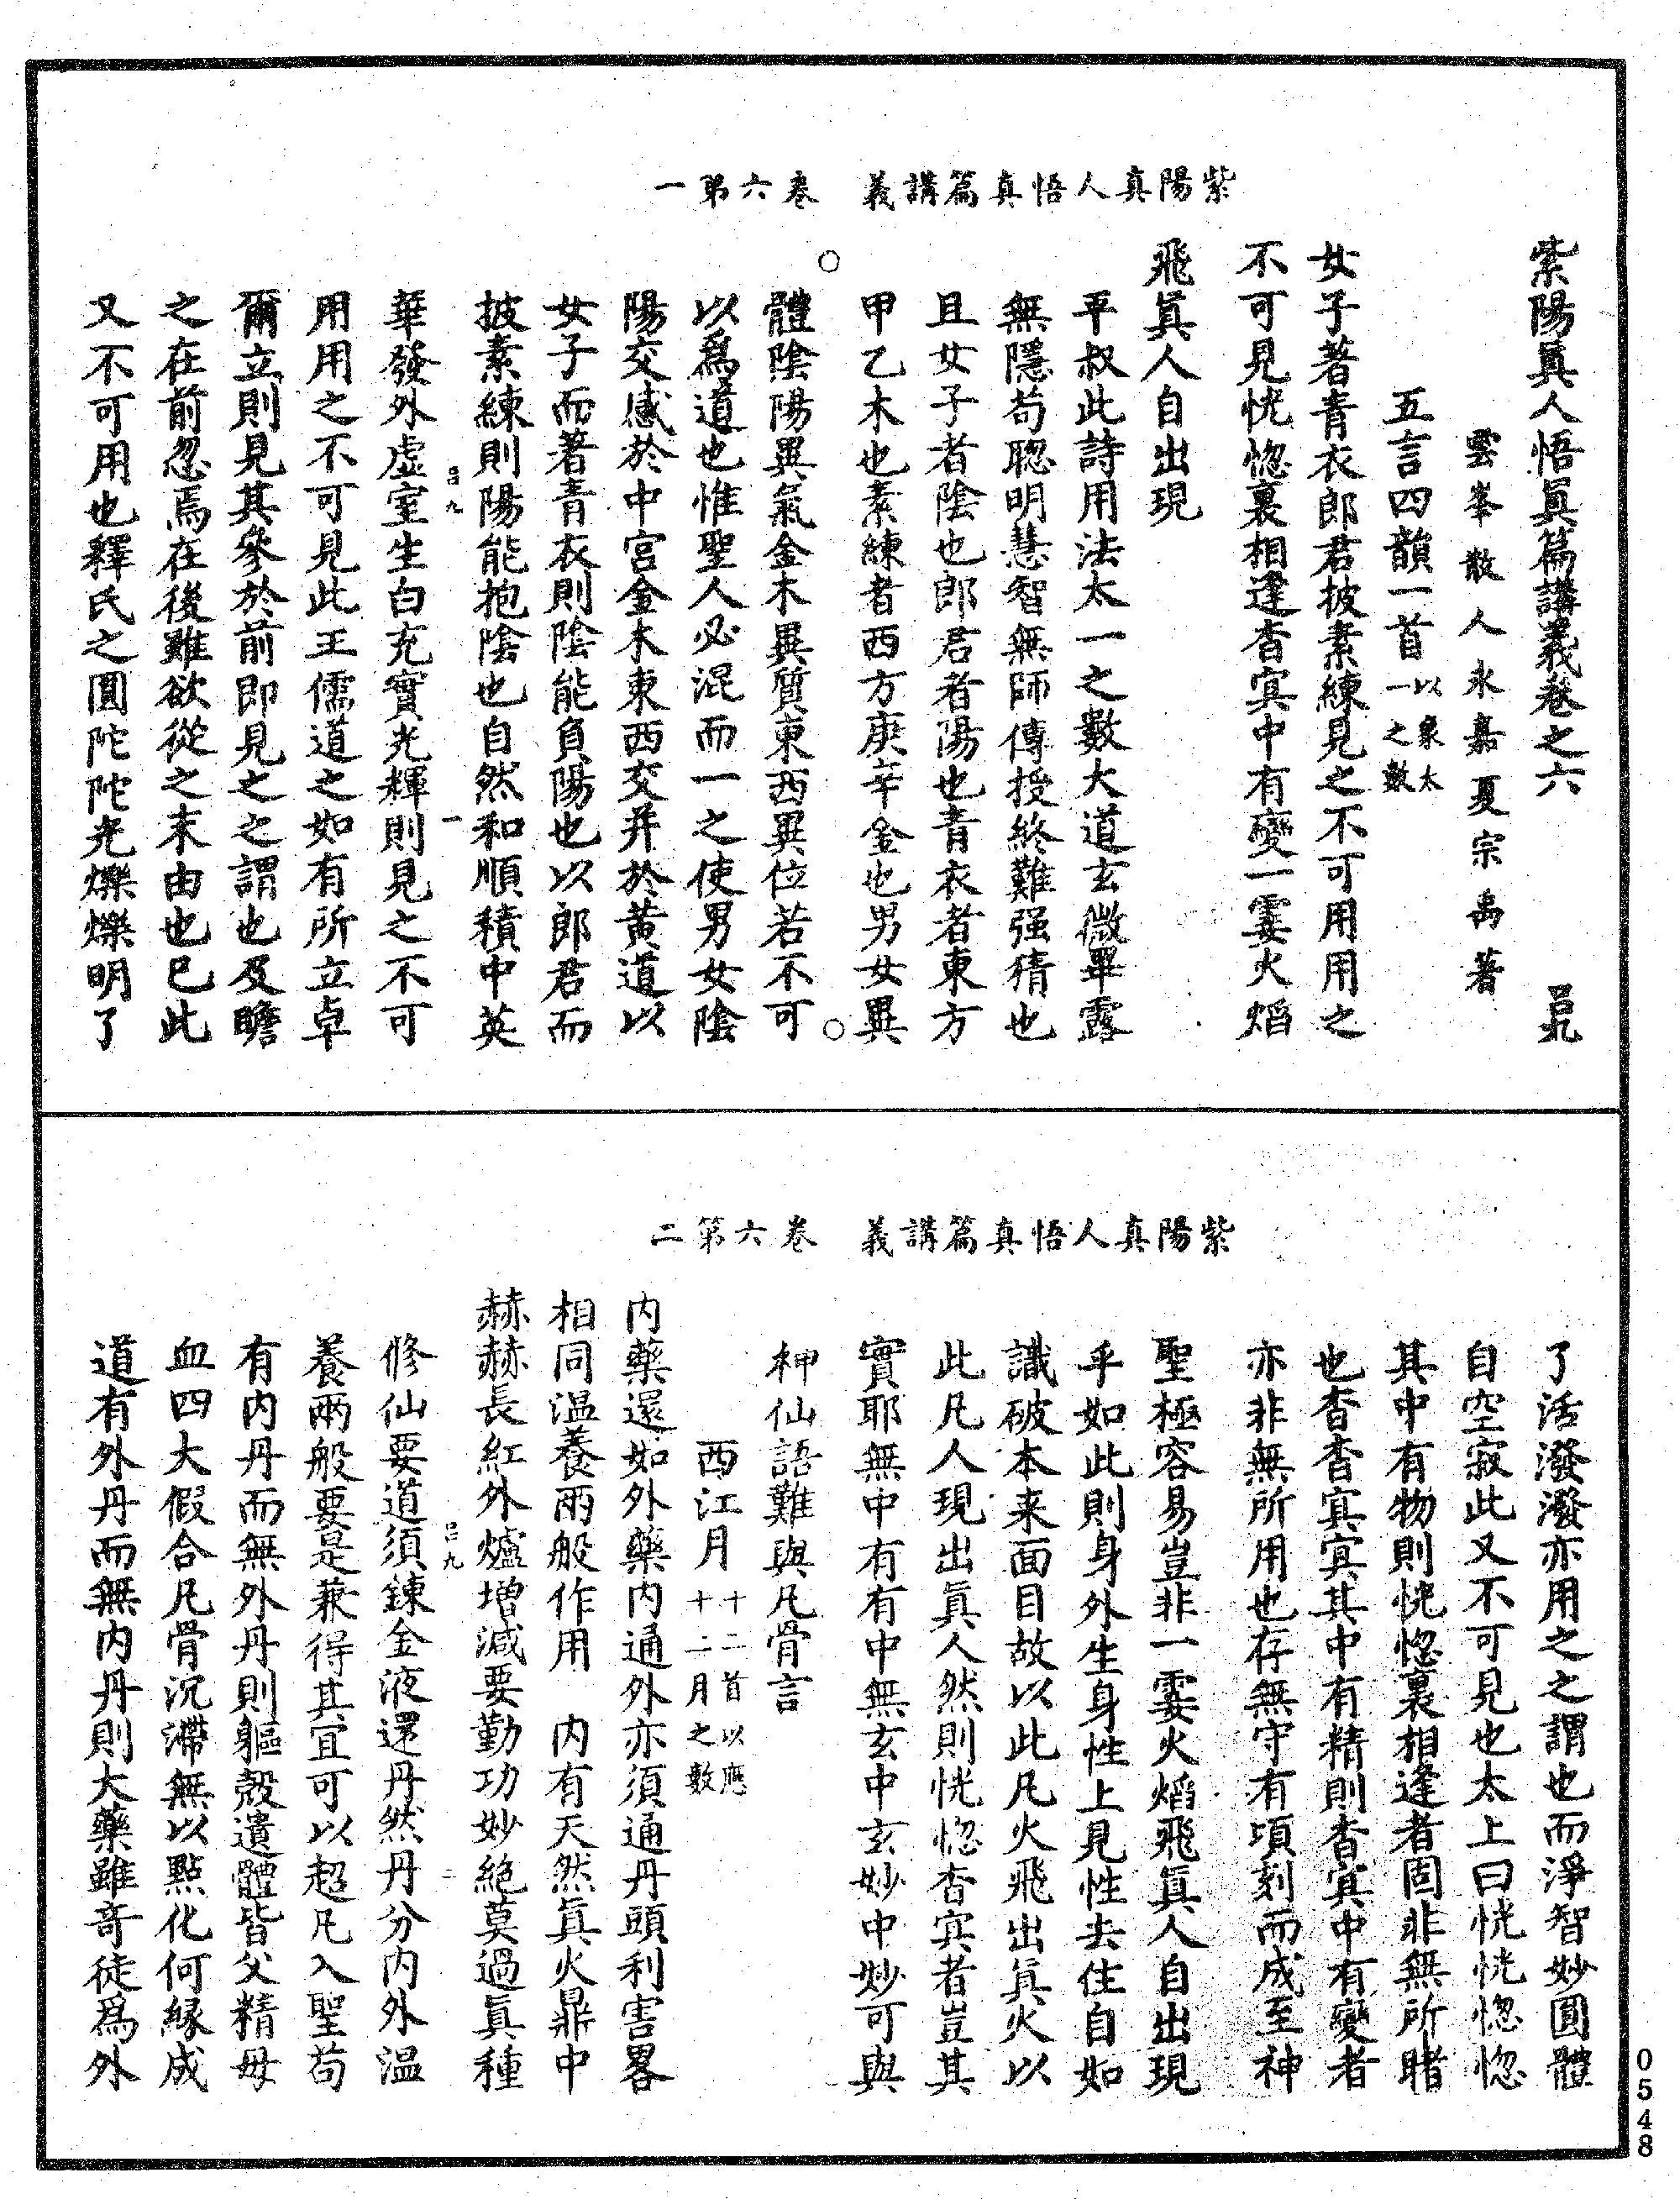 紫陽真人悟真篇講義　卷六第一
紫陽眞人悟眞篇講義卷之六
雲峯散人永嘉夏宗禹著
五言四韻一首以象太一之數
女子著青衣郎君披素練見之不可用用之
不可見恍惚裏相逢杳冥中有變一霎火焰
飛眞人自出現
平叔此詩用法太一之數大道玄微畢露
無隱苟聰明慧智無師傳授終難强猜也
且女子者陰也郎君者陽也青衣者東方
甲乙木也素練者西方庚辛金也男女異
體陰陽異氣金木異質東西異位若不可
以爲道也惟聖人必混而一之使男女陰
陽交感於中宮金木東西交并於黃道以
女子而著青衣則陰能負陽也以郎君而
披素練則陽能抱陰也自然和順積中英
華發外虛室生白充實光輝則見之不可
用用之不可見此王儒道之如有所立卓
爾立則見其參於前即見之之謂也及瞻
之在前忽焉在後雖欲從之末由也已此
又不可用也釋氏之圓陀陀光爍爍明了
紫陽真人悟真篇講義　卷六第二
了活潑潑亦用之之謂也而淨智妙圓體
自空寂此又不可見也太上曰恍恍惚惚
其中有物則恍惚裏相逢者固非無所睹
也杳杳冥冥其中有精則杳冥中有變者
亦非無所用也存無守有頃刻而成至神
聖極容易豈非一霎火焰飛眞人自出現
乎如此則身外生身性上見性去住自如
識破本来面目故以此凡火飛出眞火以
此凡人現出眞人然則恍惚杳冥者豈其
實耶無中有有中無玄中玄妙中妙可與
神仙語難與凡骨言
西江月十二首以應十二月之數
内藥還如外藥内通外亦須通丹頭利害畧
相同温養兩般作用　内有天然眞火鼎中
赫赫長紅外爐增減要勤功妙絶莫過眞種
修仙要道須鍊金液還丹然丹分内外温
養兩般要是兼得其宜可以超凡入聖苟
有内丹而無外丹則軀殼遺體皆父精母
血四大假合凡骨沉滯無以點化何緣成
道有外丹而無内丹則大藥雖竒徒爲外
0548